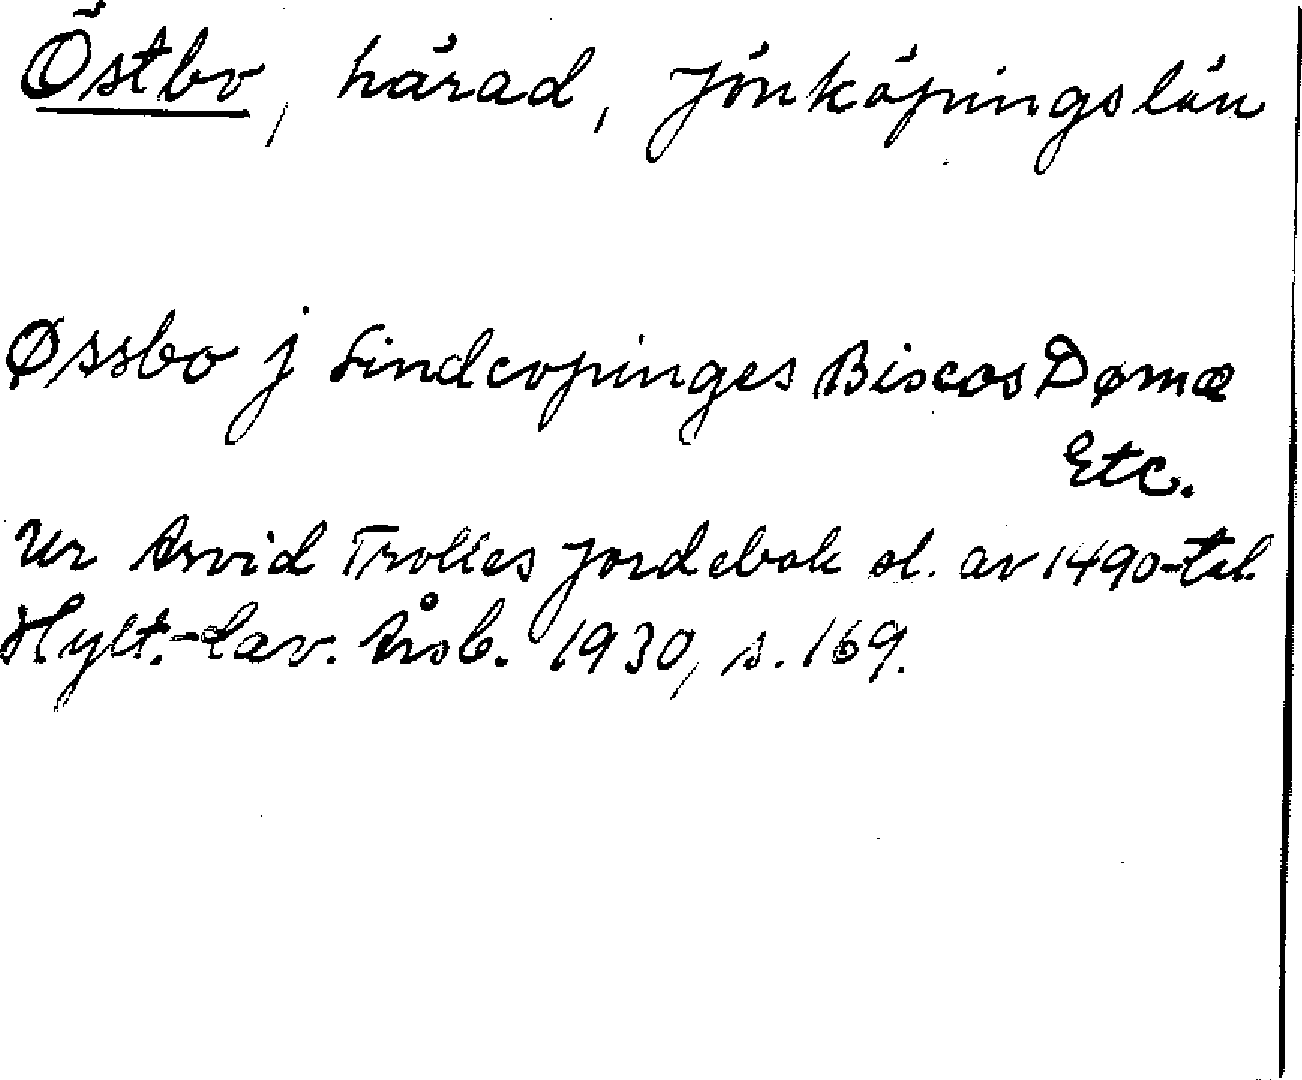 Östbo, härad, Jönköpings län
Øssbo j Lindcopinges Biscos Dømæ
Etc.
Ur Arvid Trolles Jordebok sl. av 1490-tal.
Hylt.-Cav. Årsb. 1930, s. 169.